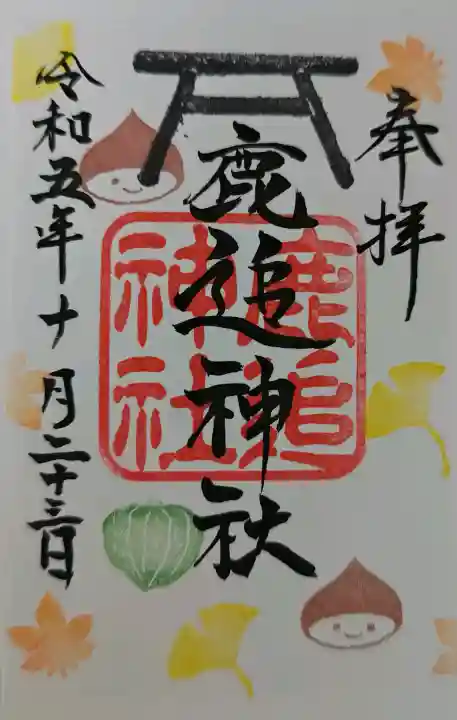 奉拝
鹿追神社
鹿追
神社
令和五年十月二十三日